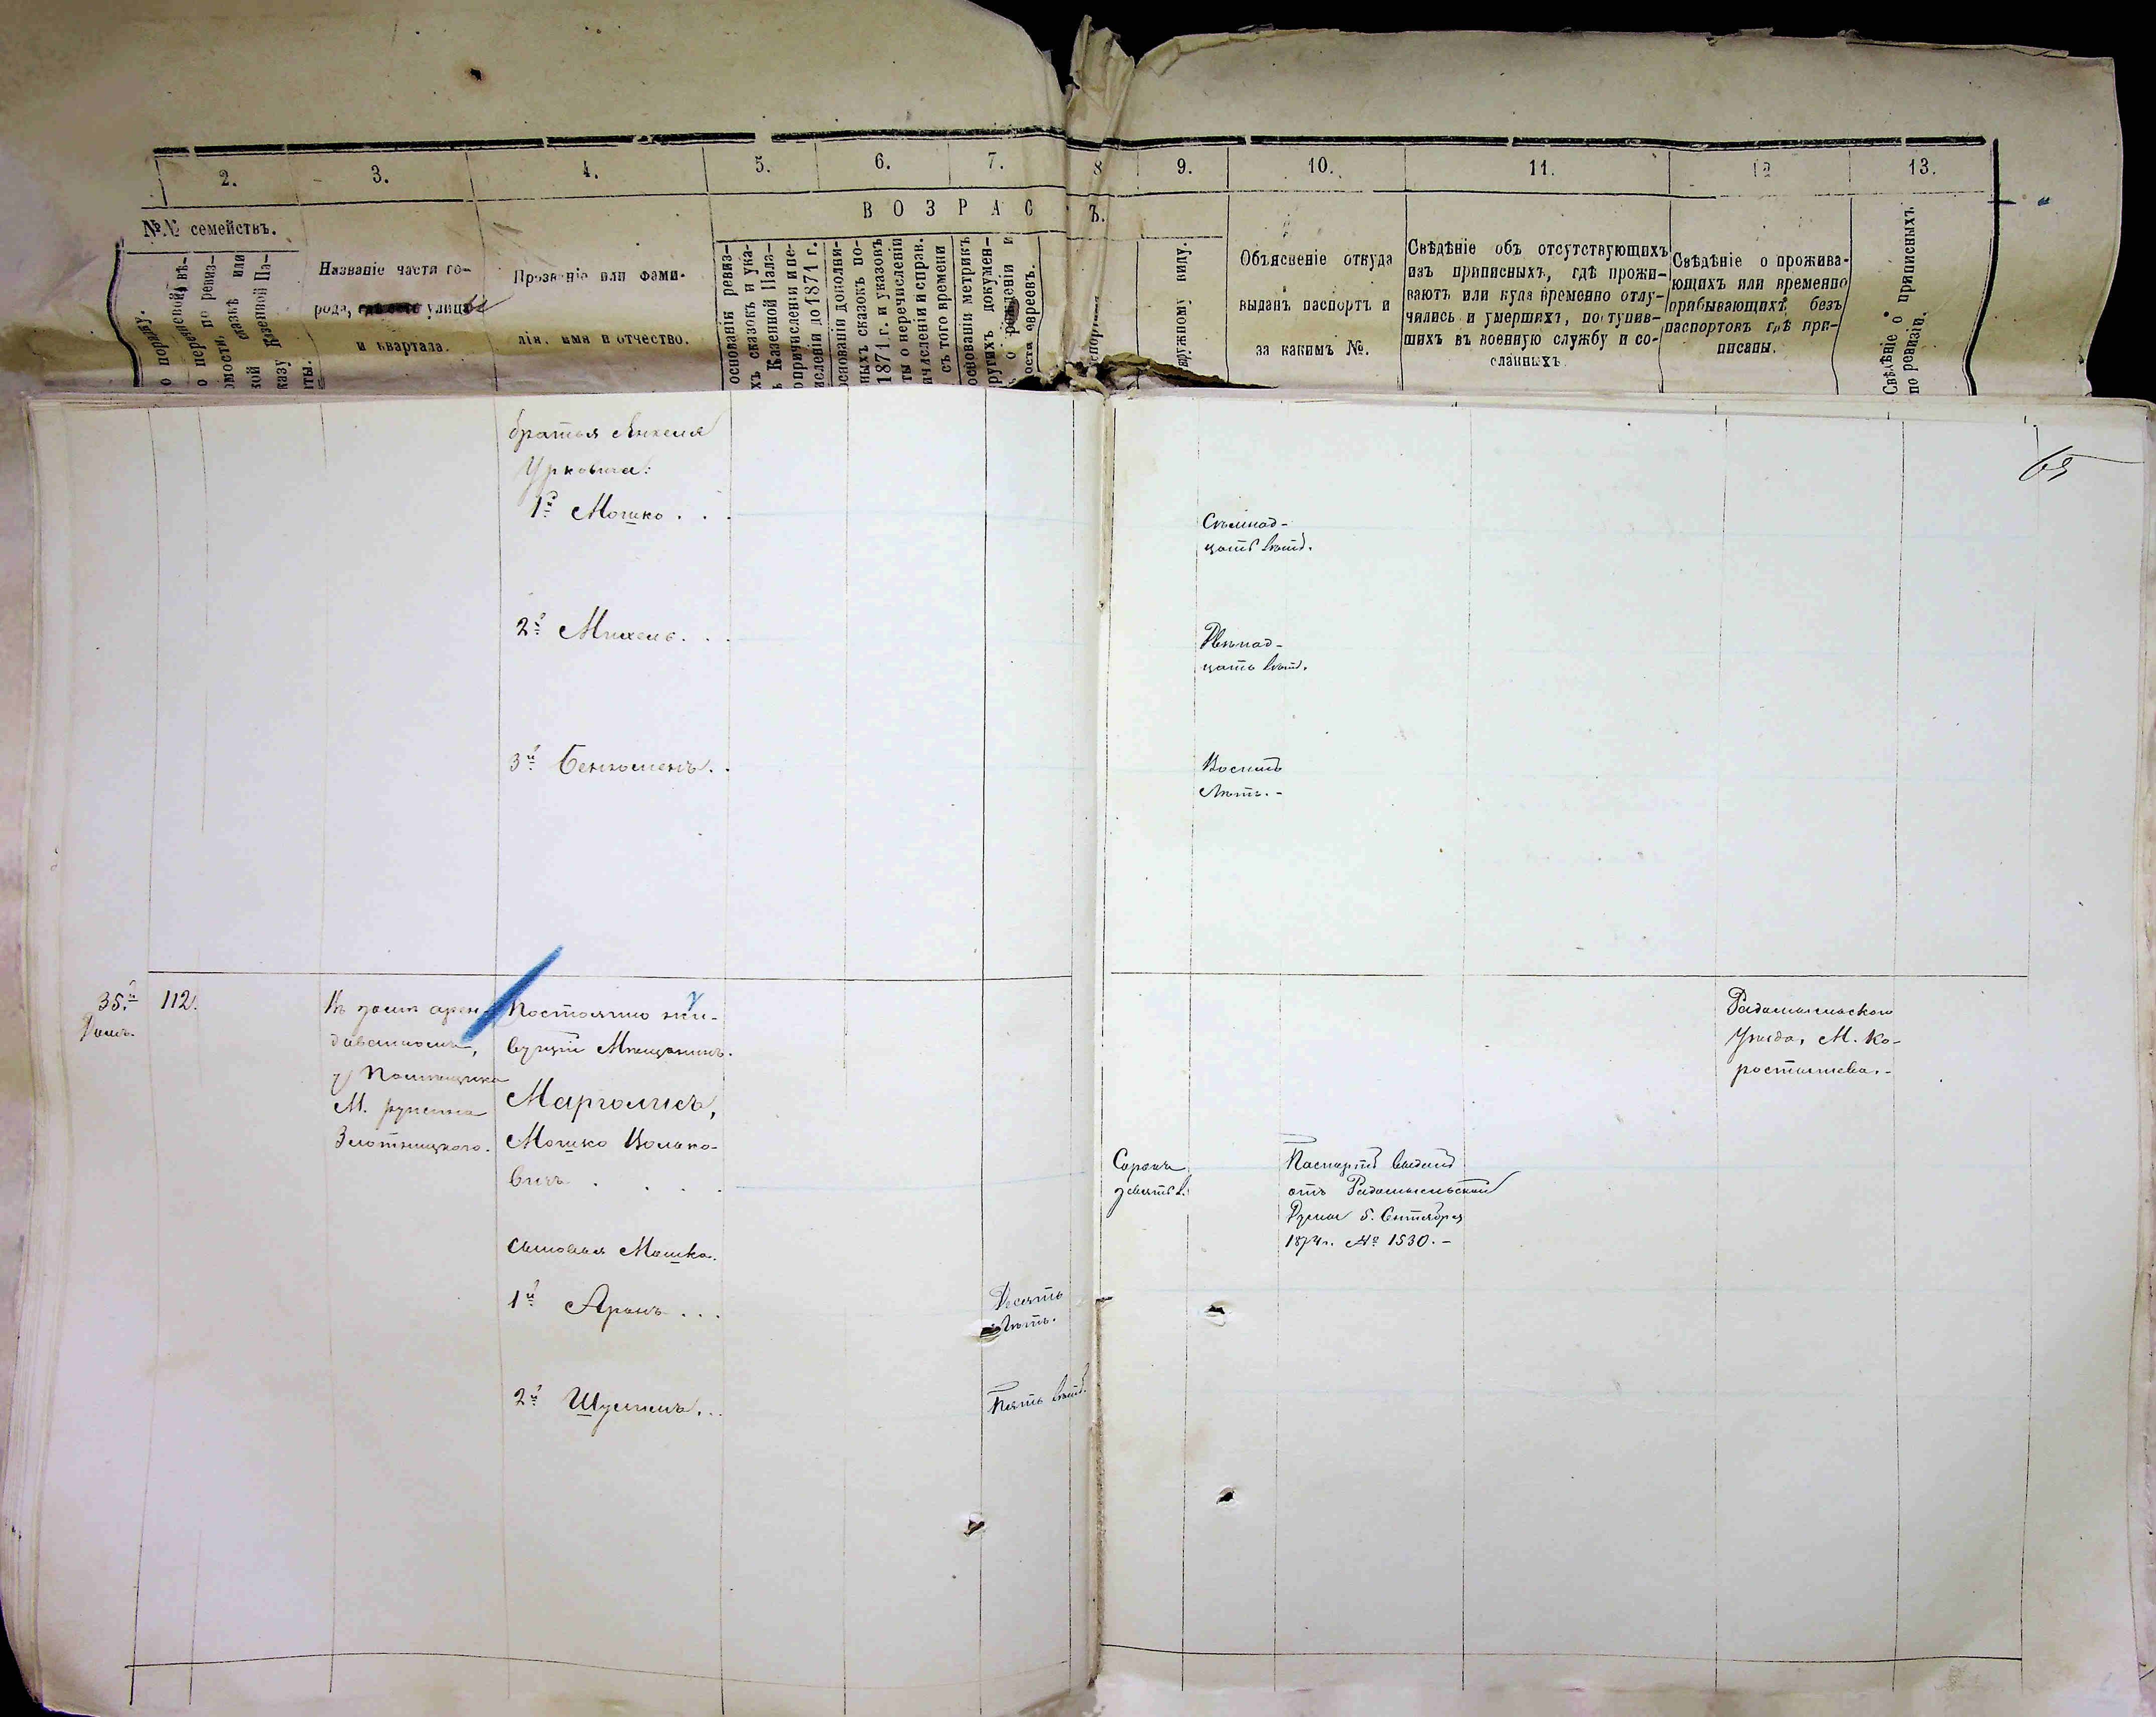 2.
3.
4.
5.
6.
7.
8
9.
10.
11.
12
13.
№№ семействъ.
ВОЗРАС
Ъ.
Названіе части го-
рода, улицы
и квартала.
Прозваніе или фами-
лія, имя и отчество.
основаніи ревиз-
хъ сказокъ и ука-
ъ Казенной Пала-
о причисленіи и пе-
исленіи до 1871 г.
основаніи дополни-
ныхъ сказокъ по-
1871 г. и указовъ
ты о перечисленіи
ичисленіи и справ.
съ того времени
основаніи метрикъ
ругихъ докумен-
о рожденіи и
оста евреевъ.
аружному виду.
Объясненіе откуда
выданъ паспортъ и
за какимъ №.
Свѣдѣніе объ отсутствующихъ
изъ приписныхъ, гдѣ прожи-
ваютъ или куда временно отлу-
чались и умершихъ, поступив-
шихъ въ военную службу и со-
сланныхъ
Свѣдѣніе о прожива-
ющихъ или временно
прибывающихъ, безъ
паспортовъ гдѣ при-
писаны.
Свѣдѣніе о приписныхъ
по ревизіи.
65
братья Янкеля
Урковича:
1й Мошко . . .
Съмнад-
цать лѣтъ.
2й Михель. . .
Двѣнад-
цать лѣтъ.
3й Бенюменъ. .
Восимъ
Лѣтъ.-
35й
Домъ.
112.
Въ домѣ арен-
дованномъ,
у Помещика
М.
Злотницкого.
Постоянно жи-
вущій Мѣщанинъ.
Марголисъ,
Мошко Волько-
вичъ . . . .
Сорокъ
девять л.
Паспортъ выданъ
отъ Радомысльской
Думы 5. Сентября
1874г. № 1530.-
Радомысльского
Уѣзда, М. Ко-
ростышева.-
Сыновья Мошка.
1й Аронъ . . .
Десять
Лѣтъ.
2й Шулимъ. . .
Пять лѣтъ.